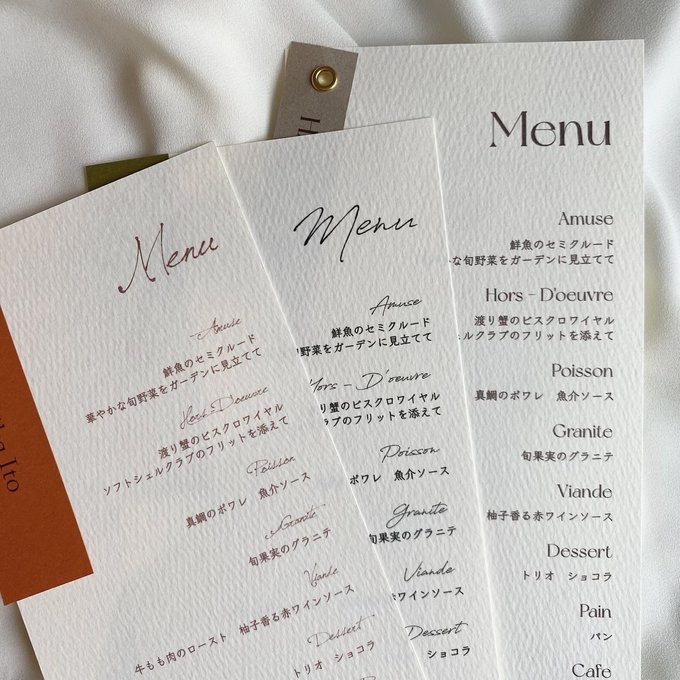 Menu
Amuse
鮮魚のセミクルード
華やかな旬野菜をガーデンに見立てて
Hors - D'oeuvre
渡り蟹のビスクロワイヤル
ソフトシェルクラブのフリットを添えて
Poisson
真鯛のポワレ 魚介ソース
Granite
旬果実のグラニテ
Viande
牛もも肉のロースト 柚子香る赤ワインソース
Dessert
トリオ ショコラ
Ito
Menu
Amuse
鮮魚のセミクルード
旬野菜をガーデンに見立てて
Hors - D'oeuvre
渡り蟹のビスクロワイヤル
ラブのフリットを添えて
Poisson
ポワレ 魚介ソース
Granite
旬果実のグラニテ
Viande
赤ワインソース
Dessert
ショコラ
Menu
Amuse
鮮魚のセミクルード
かな旬野菜をガーデンに見立てて
Hors - D'oeuvre
渡り蟹のビスクロワイヤル
シェルクラブのフリットを添えて
Poisson
真鯛のポワレ 魚介ソース
Granite
旬果実のグラニテ
Viande
柚子香る赤ワインソース
Dessert
トリオ ショコラ
Pain
パン
Cafe